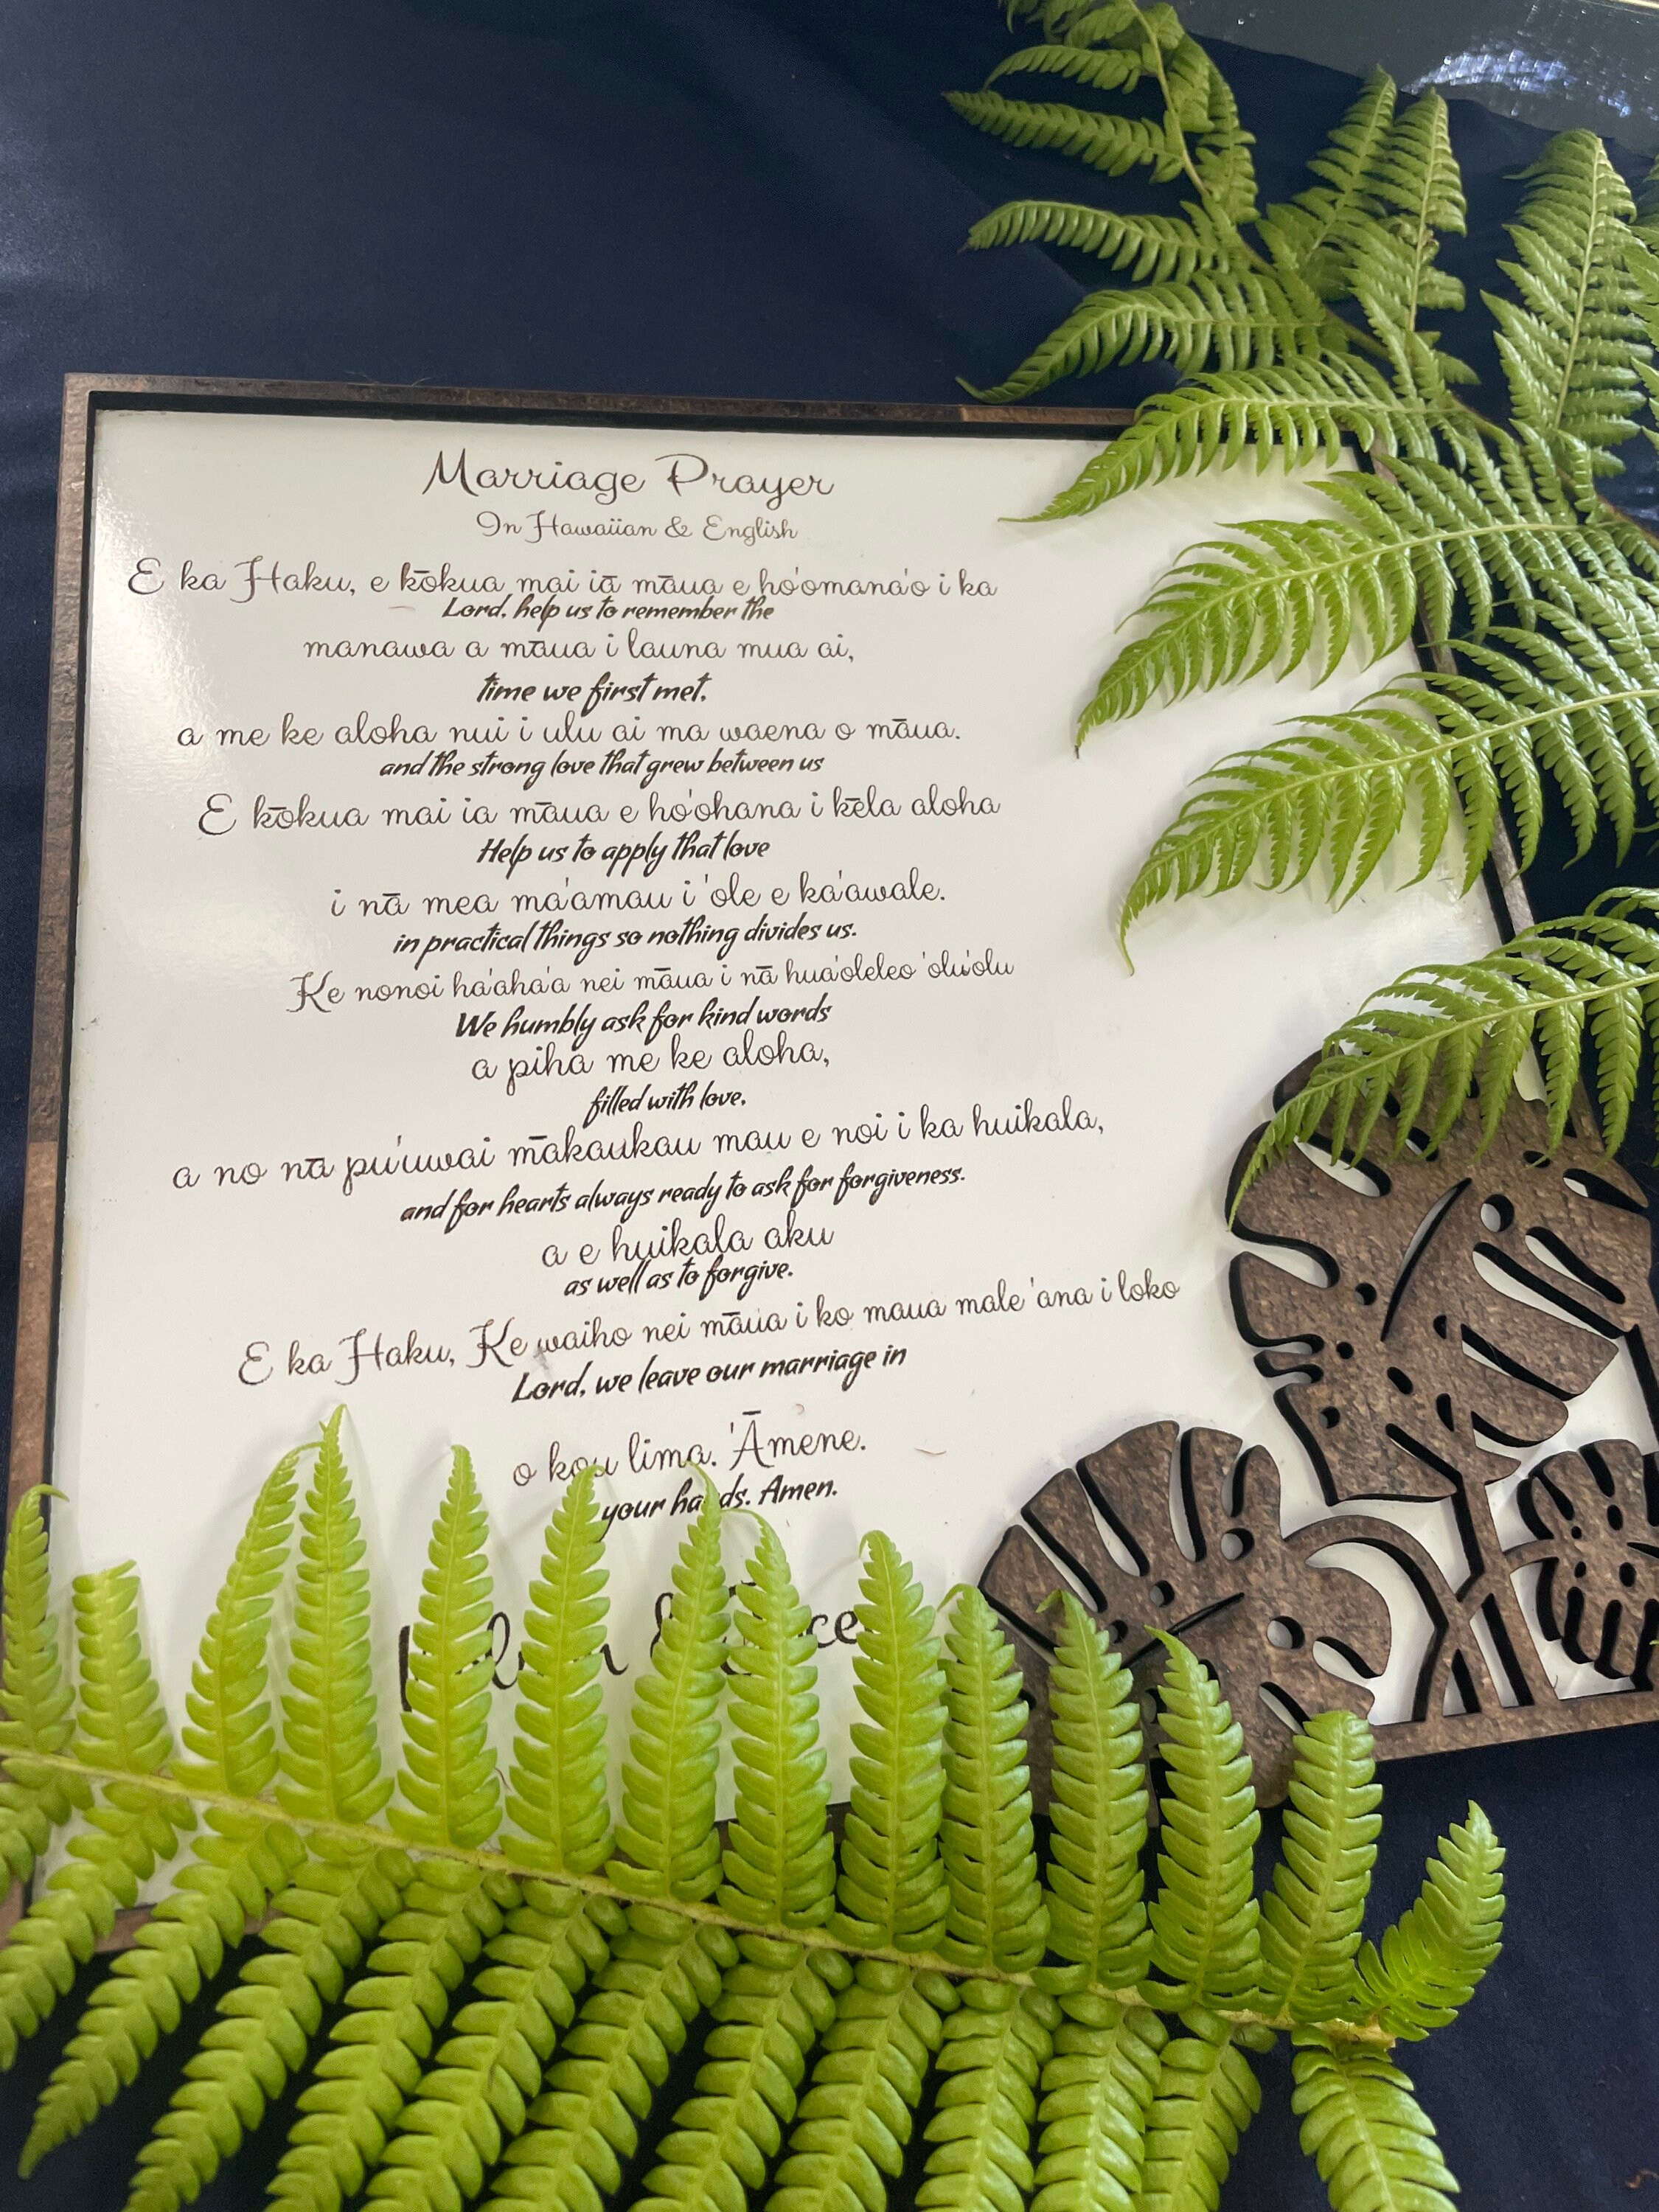 Marriage Prayer
In Hawaiian & English
E ka Haku, e kōkua mai iā māua e ho'omana'o i ka
Lord, help us to remember the
manawa a māua i launa mua ai,
time we first met,
a me ke aloha nui i ulu ai ma waena o māua.
and the strong love that grew between us
E kōkua mai ia māua e ho'ohana i kēla aloha
Help us to apply that love
i nā mea ma'amau i 'ole e ka'awale.
in practical things so nothing divides us.
Ke nonoi ha'aha'a nei māua i nā hua'oleleo 'olu'olu
We humbly ask for kind words
a piha me ke aloha,
filled with love,
a no nā pu'uwai mākaukau mau e noi i ka huikala,
and for hearts always ready to ask for forgiveness.
a e huikala aku
as well as to forgive.
E ka Haku, Ke waiho nei māua i ko maua male 'ana i loko
Lord, we leave our marriage in
o kou lima. 'Āmene.
your hands. Amen.